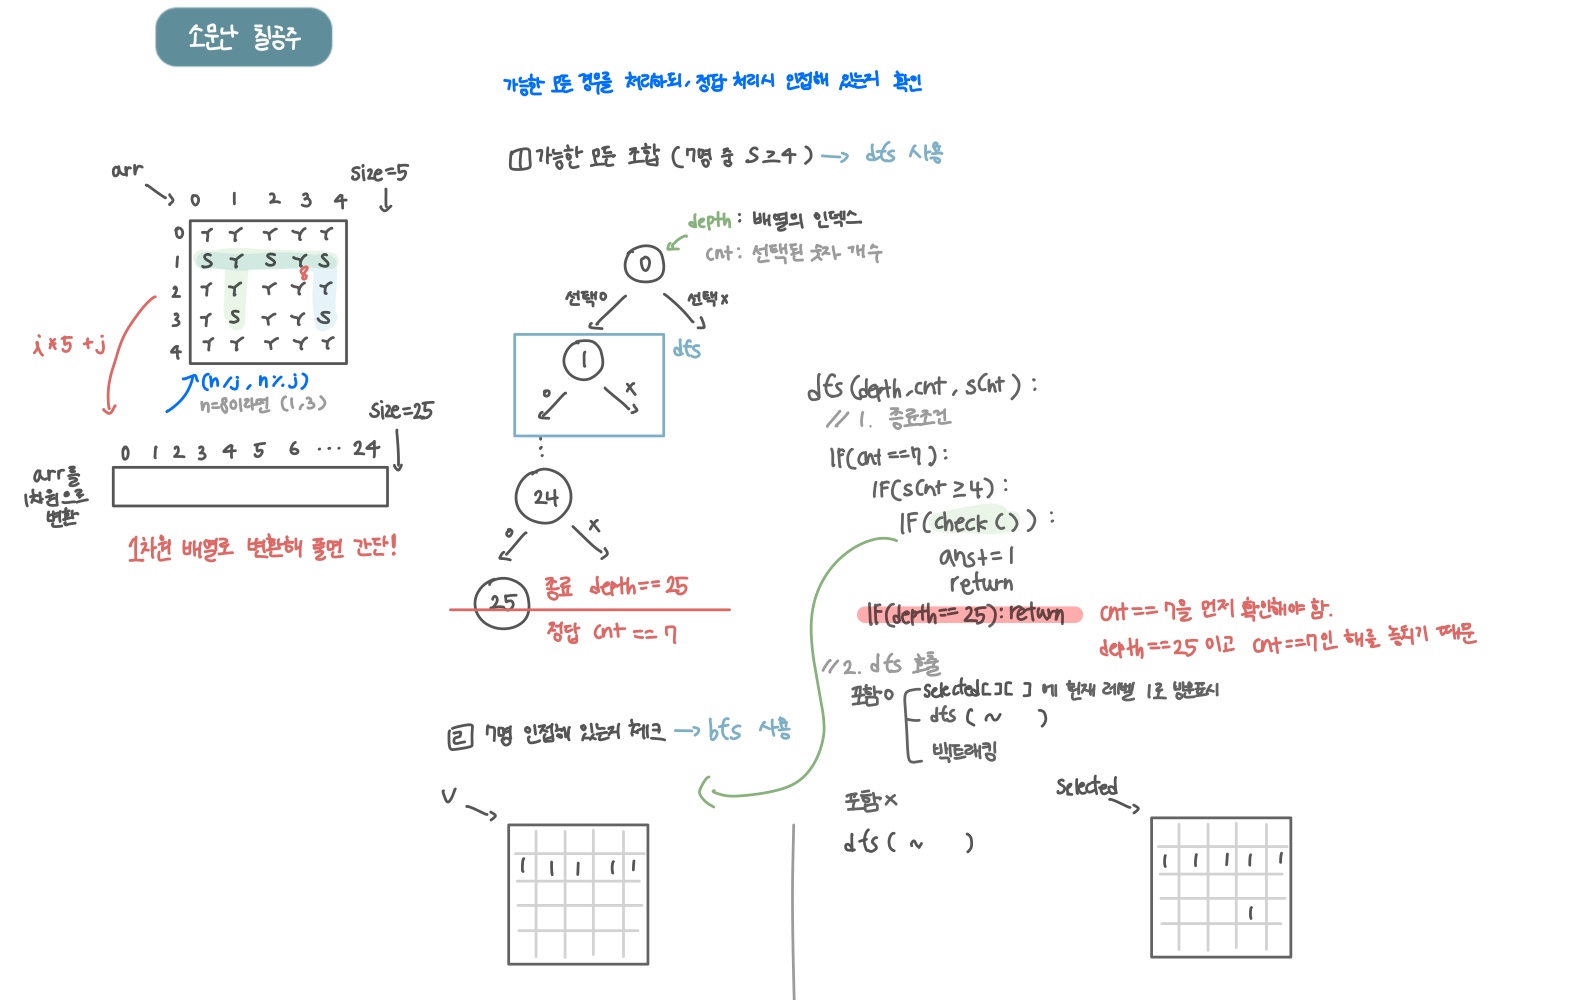 소문난 칠공주
가능한 모든 경우를 처리하되, 정답 처리시 인접해 있는지 확인
arr
size=5
0 1 2 3 4
0 Y Y Y Y Y
1 S Y S Y S
8
2 Y Y Y Y Y
3 Y S Y Y S
4 Y Y Y Y Y
i*5+j
(n/j, n%j)
n=8이라면 (1,3)
size=25
0 1 2 3 4 5 6 ... 24
arr를
1차원으로
변환
1차원 배열로 변환해 풀면 간단!
1 가능한 모든 조합 (7명 중 S≥4) → dfs 사용
depth: 배열의 인덱스
cnt: 선택된 숫자 개수
0
선택o 선택x
1
dfs
o x
⋮
24
o x
25
종료 depth==25
정답 cnt==7
dfs(depth,cnt,sCnt):
// 1. 종료조건
IF(cnt==7):
IF(sCnt≥4):
IF(check()):
ans+=1
return
IF(depth==25):return
cnt==7을 먼저 확인해야 함.
depth==25이고 cnt==7인 해를 놓치기 때문
//2. dfs 호출
포함o
selected[][]에 현재 레벨 1로 방문표시
dfs(~ )
백트래킹
포함x
dfs(~ )
2 7명 인접해 있는지 체크 → bfs 사용
V
1 1 1 1 1
selected
1 1 1 1 1
1